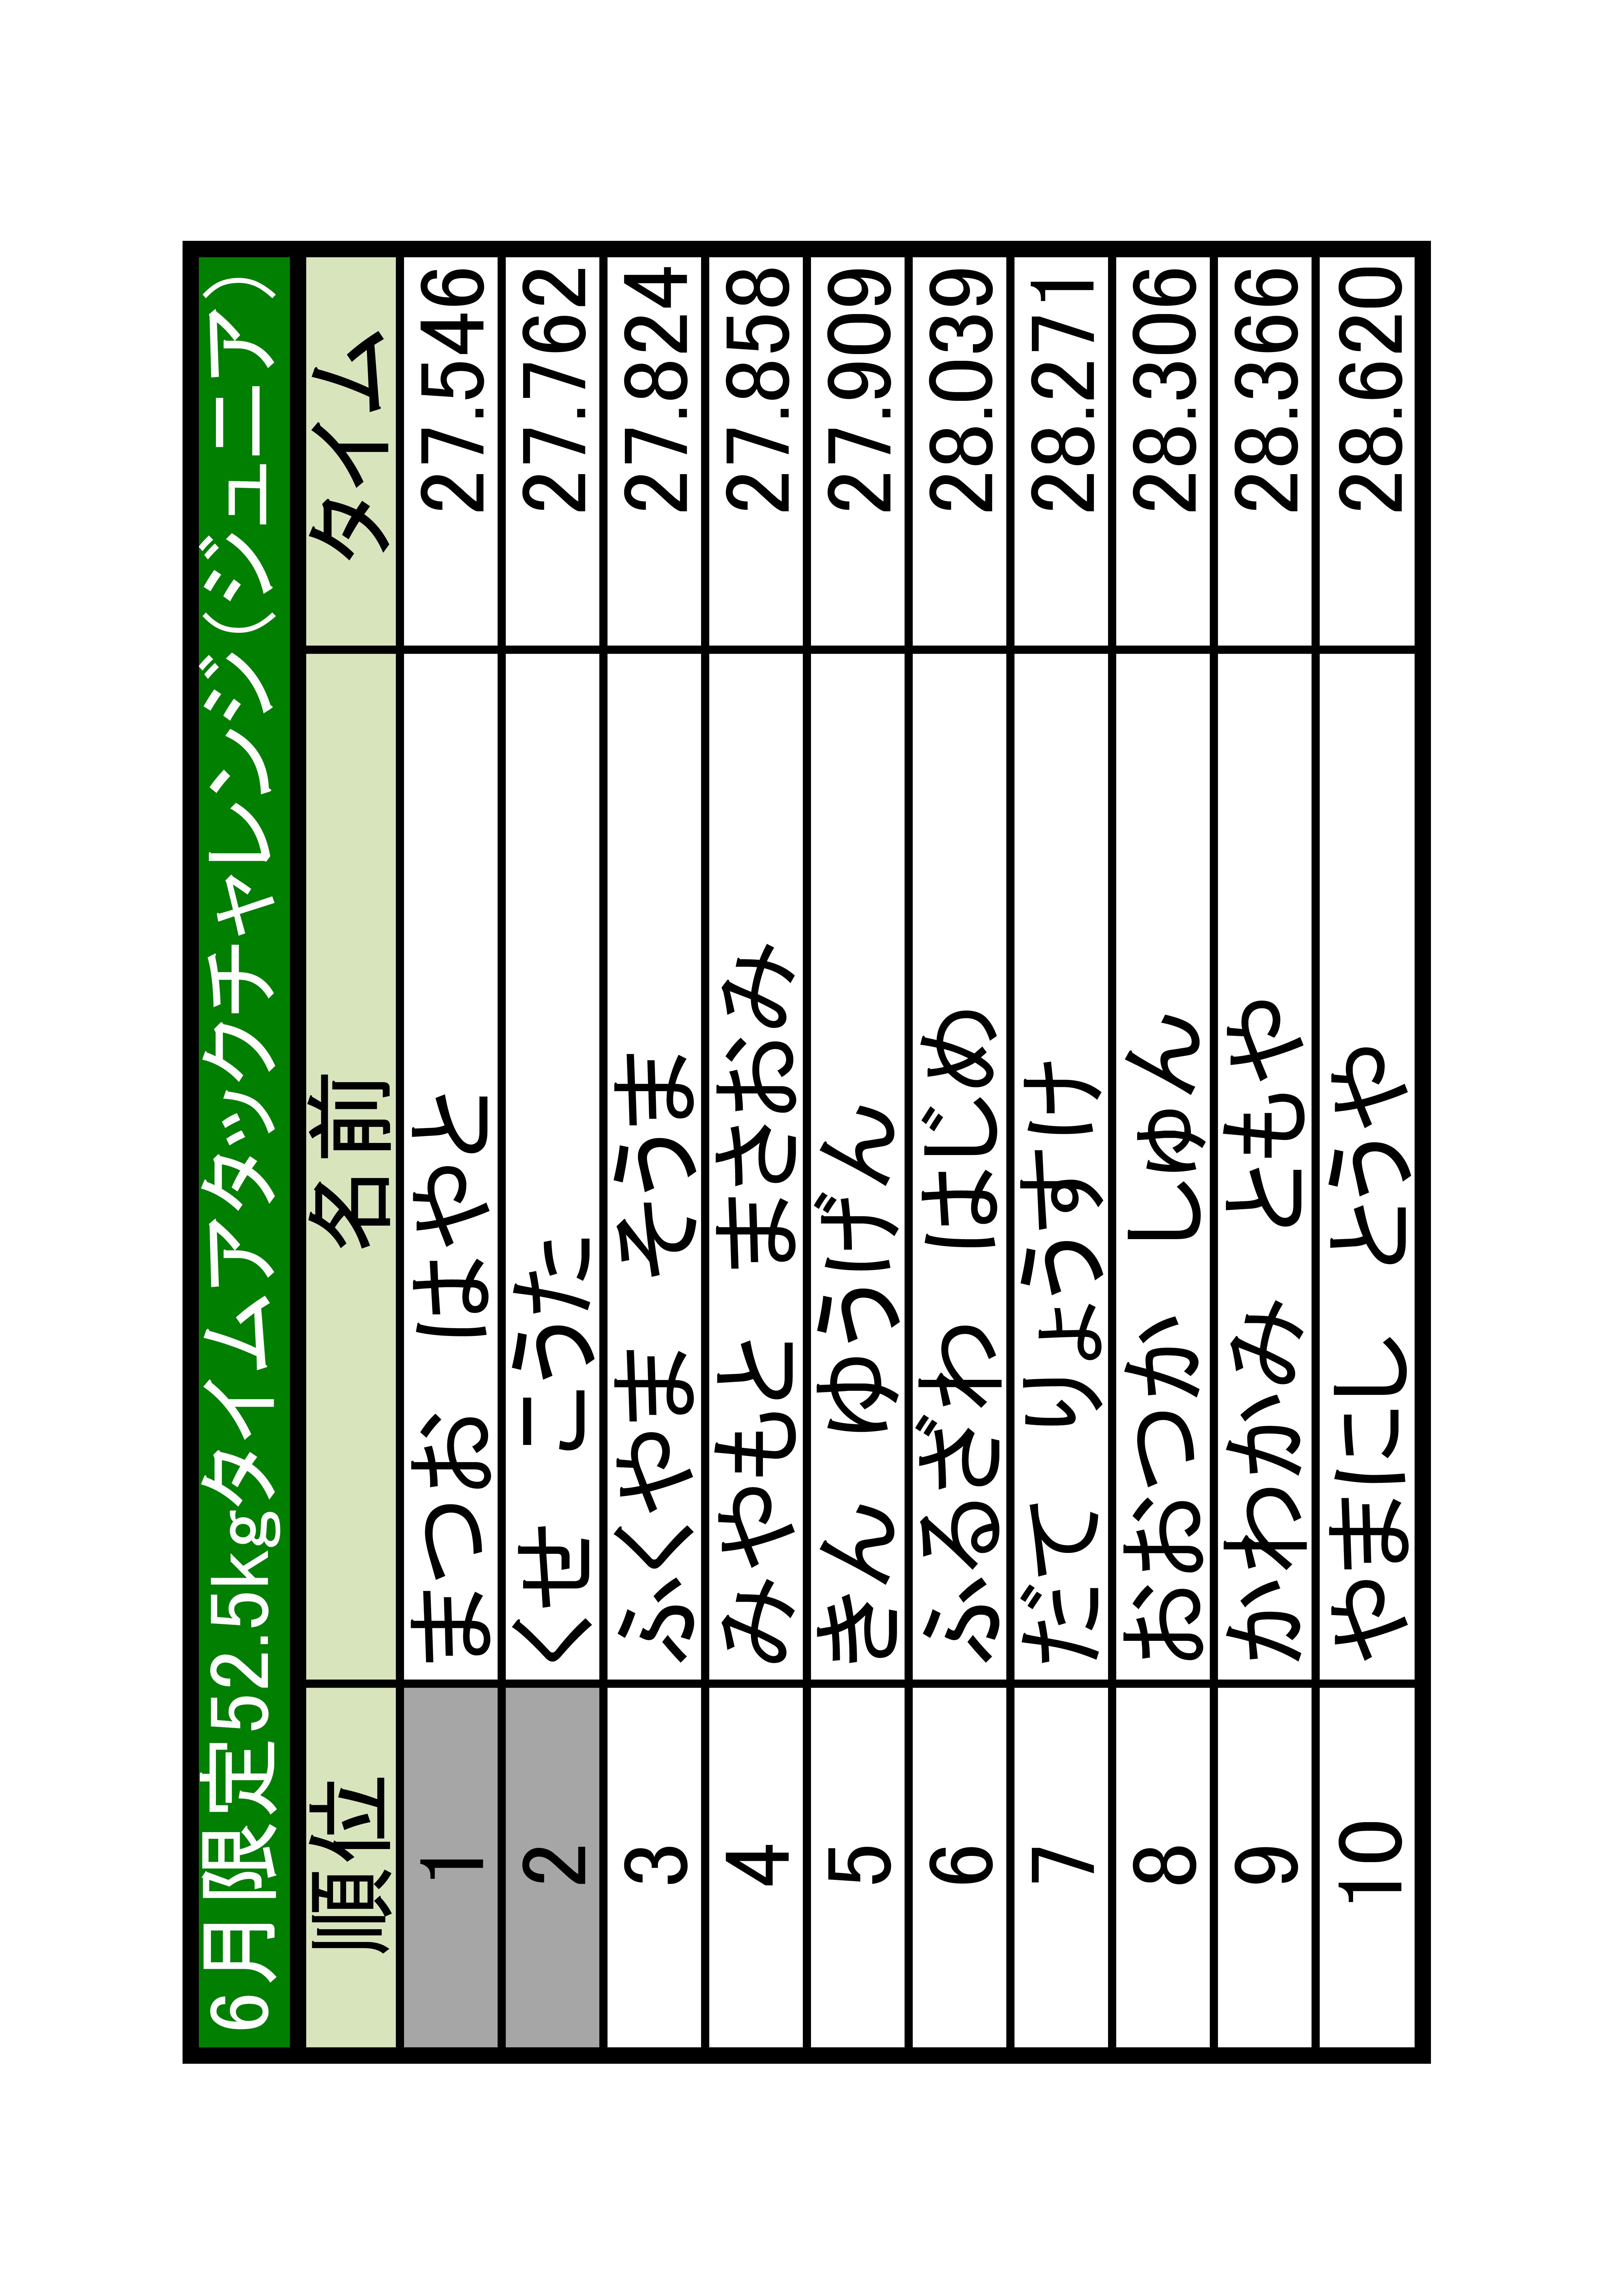 6月限定52.5kgタイムアタックチャレンジ(ジュニア)
順位 名前 タイム
1 まつお はやと 27.546
2 くせ こうた 27.762
3 ふくやま そうま 27.824
4 みやもと まさおみ 27.858
5 きん ゆうげん 27.909
6 ふるざわ はじめ 28.039
7 だて りょうすけ 28.271
8 おおつか しゅん 28.306
9 かわかみ ともや 28.366
10 やまにし とうや 28.620